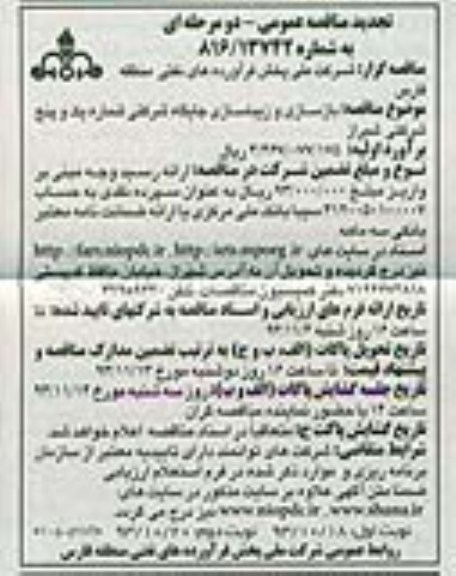 تجدید مناقصه عمومی - دو مرحله ای
به شماره ۸۱۶/۱۳۷۴۲
مناقصه گزار: شرکت ملی پخش فرآورده های نفتی منطقه
فارس
موضوع مناقصه: بازسازی و زیباسازی جایگاه شرکتی شماره یک و پنج
شرکتی شیراز
برآورد اولیه: ریال
نوع و مبلغ تضمین شرکت در مناقصه: ارائه رسید وجه مبنی بر
واریز مبلغ ۹۳/۰۰۰/۰۰۰ ریال به عنوان سپرده نقدی به حساب
سیبا بانک ملی مرکزی یا ارائه ضمانت نامه معتبر
بانکی سه ماهه
اسناد در سایت های http://iets.mporg.ir , http://fars.niopdc.ir
نیز درج گردیده و تحویل آن به آدرس شیراز خیابان حافظ
دفتر کمیسیون مناقصات تلفن
تاریخ ارائه فرم های ارزیابی و اسناد مناقصه به شرکتهای تایید شده: تا
ساعت ۱۶ روز شنبه
تاریخ تحویل پاکات (الف، ب و ج) به ترتیب تضمین مدارک مناقصه و
پیشنهاد قیمت: تا ساعت ۱۶ روز دوشنبه مورخ ۹۳/۱۱/۱۳
تاریخ جلسه گشایش پاکات (الف و ب): روز سه شنبه مورخ ۹۳/۱۱/۱۴
ساعت ۱۲ با حضور نماینده مناقصه گران
تاریخ گشایش پاکت ج: متعاقبا در اسناد مناقصه اعلام خواهد شد.
شرایط متقاضی: شرکت های توانمند دارای تاییدیه معتبر از سازمان
برنامه ریزی و موارد ذکر شده در فرم استعلام ارزیابی
ضمنا متن آگهی علاوه بر سایت مذکور در سایت های
www.shana.ir , www.niopdc.ir نیز درج می گردد.
نوبت اول: ۹۳/۱۰/۱۸ نوبت دوم: ۹۳/۱۰/۲۰
روابط عمومی شرکت ملی پخش فرآورده های نفتی منطقه فارس